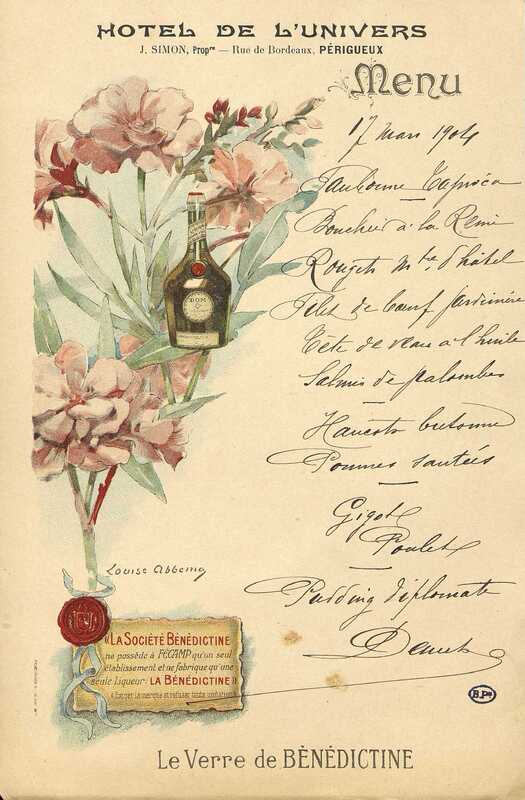 HOTEL DE L'UNIVERS
J. SIMON, Propre — Rue de Bordeaux, PÉRIGUEUX
Menu
17 Mars 1904
Faubonne Tapioca
Bouchées à la Reine
Rougets Mtre d'hôtel
Filet de bœuf Jardinière
Tête de veau à l'huile
Salmis de palombes
Haricots bretonne
Pommes sautées
Gigot
Poulet
Pudding diplomate
Dessert
DOM
Louise Abbema
«LA SOCIÉTÉ BÉNÉDICTINE
ne possède à FÉCAMP qu'un seul
établissement et ne fabrique qu'une
seule Liqueur: LA BÉNÉDICTINE»
Exiger la marque et refuser toute imitation
B.P.
Le Verre de BÉNÉDICTINE